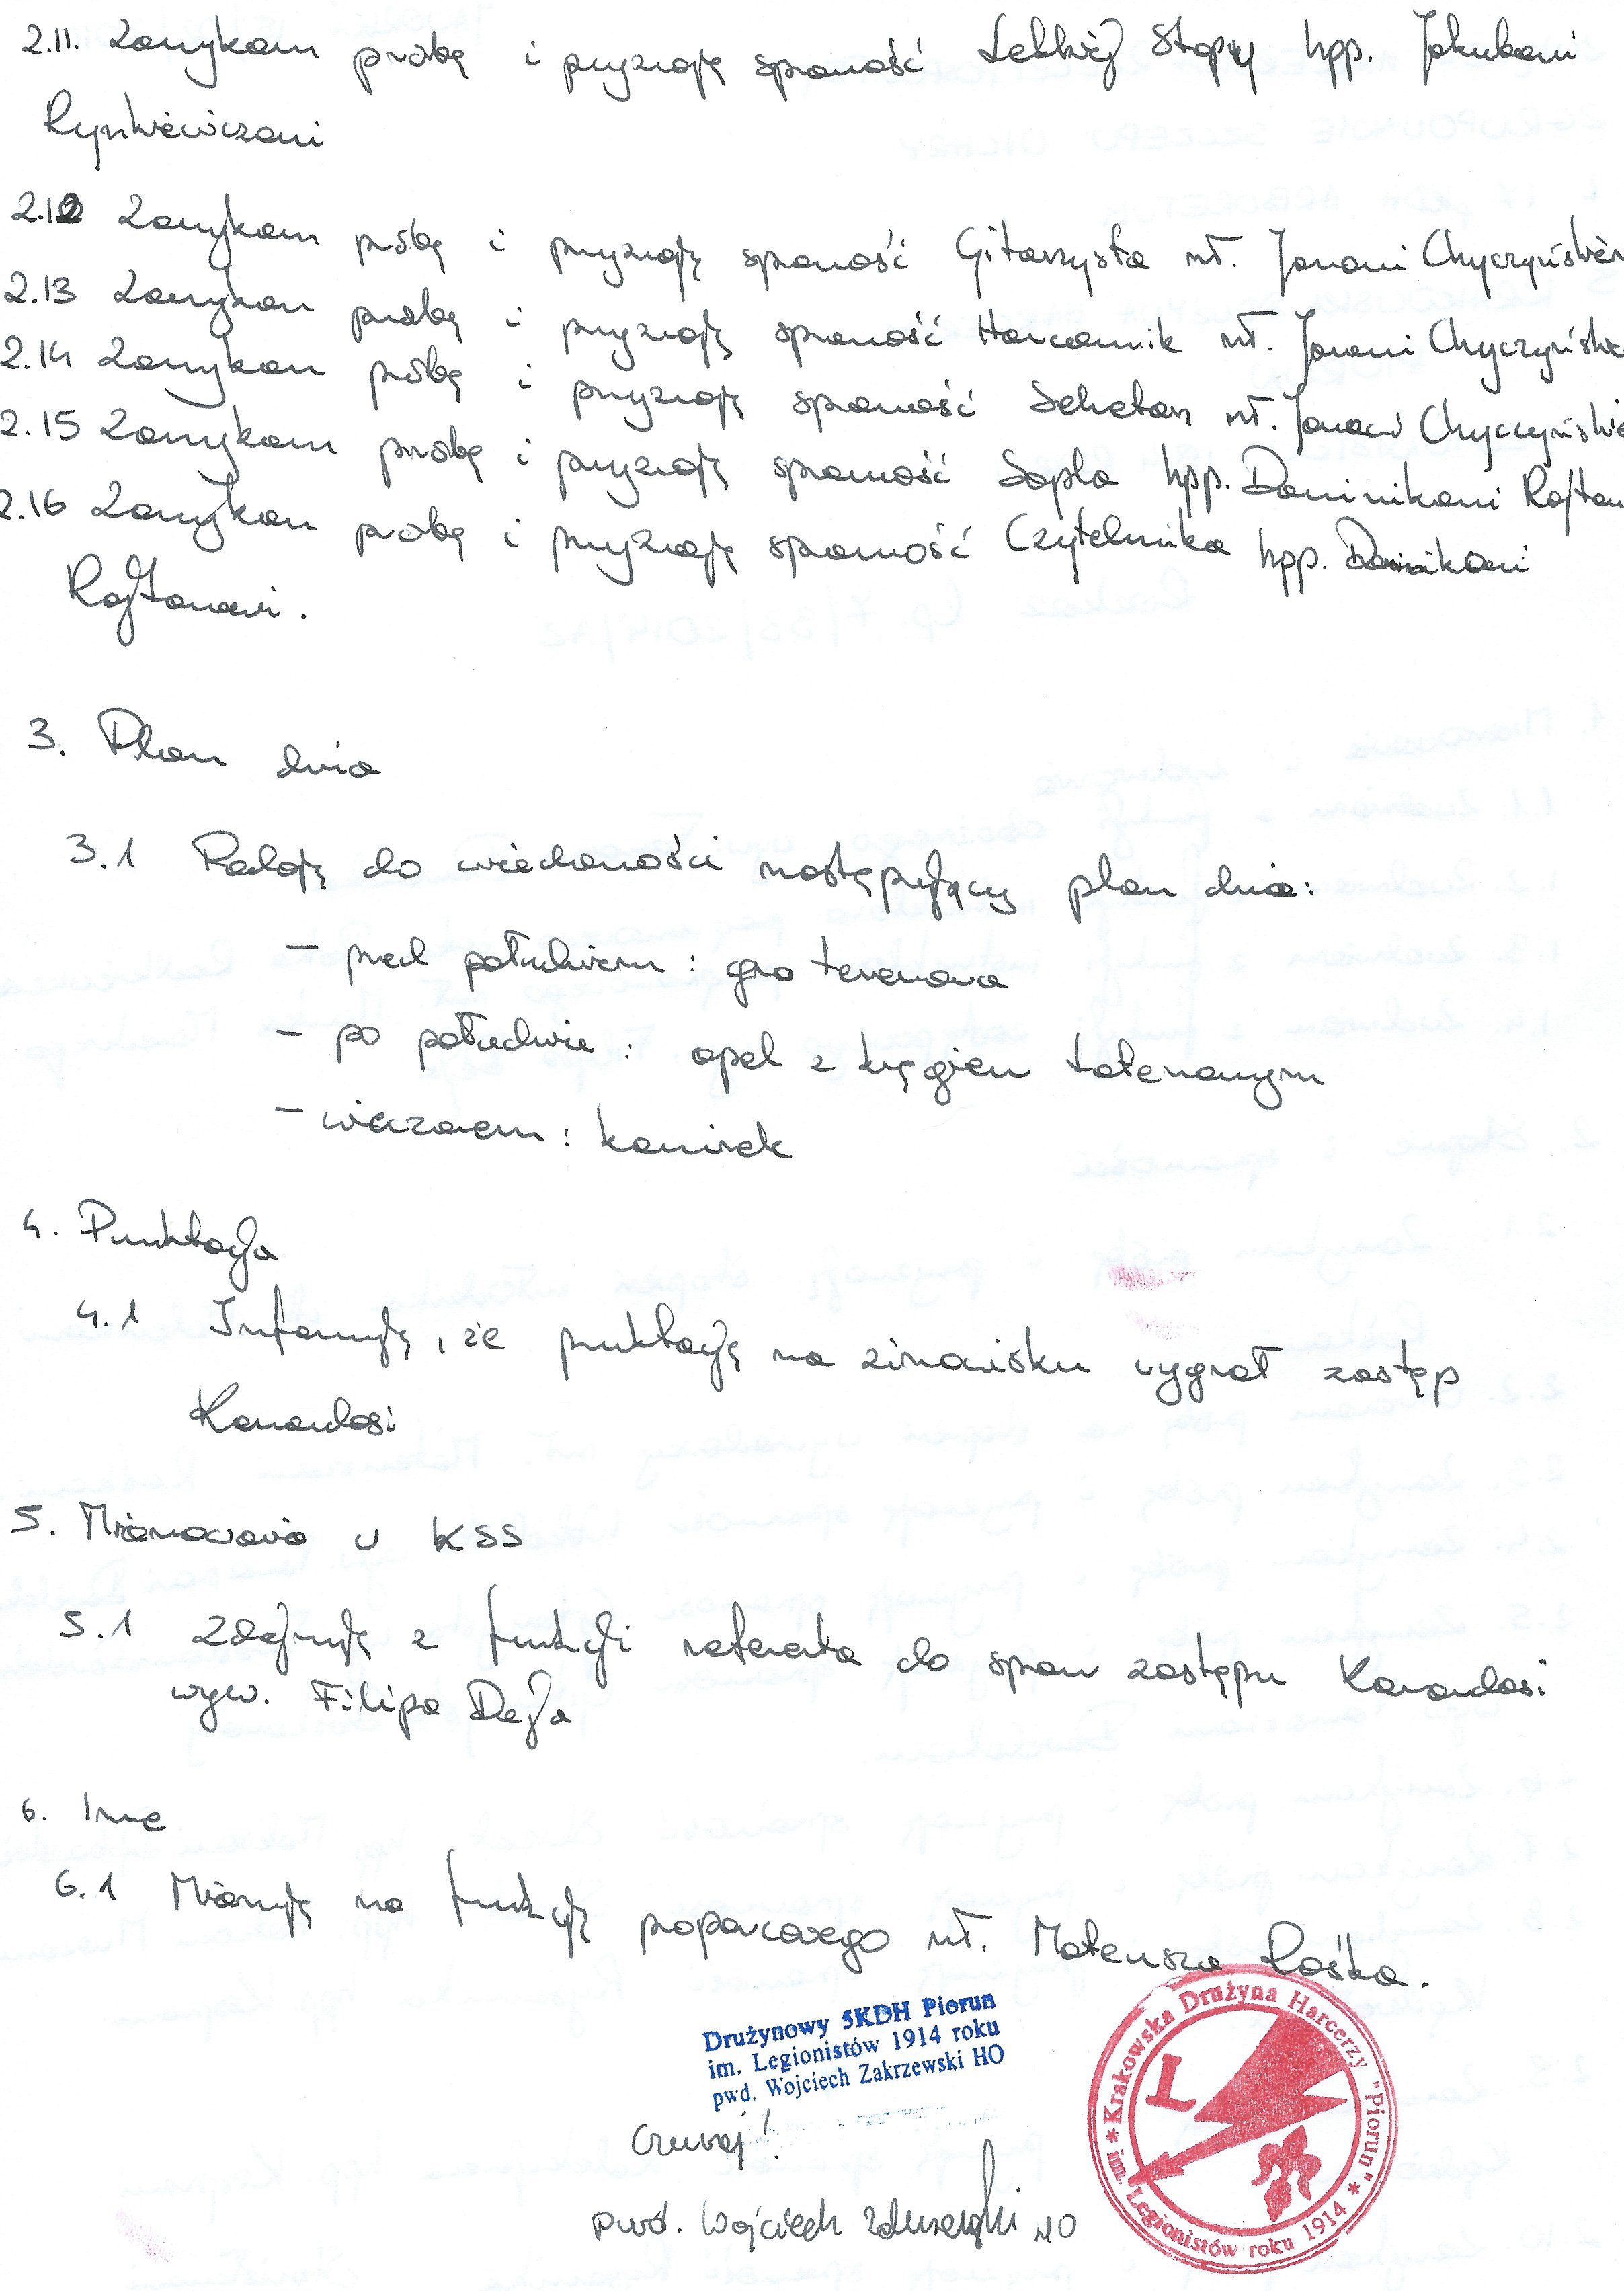 2.11. Zamykam próbę i przyznaję sprawność Lekkiej Stopy hpp. Jakubowi
Rynkiewiczowi
2.12 Zamykam próbę i przyznaję sprawność Gitarzysta mł. Janowi
2.13 Zamykam próbę i przyznaję sprawność Harcownik mł. Janowi
2.14 Zamykam próbę i przyznaję sprawność Sekretarz mł. Janowi
2.15 Zamykam próbę i przyznaję sprawność Łapka hpp. Dominikowi
2.16 Zamykam próbę i przyznaję sprawność Czytelnika hpp. Dominikowi
Rajtarowi.
3. Plan dnia
3.1 Podaję do wiadomości następujący plan dnia:
- przed południem : gra terenowa
- po południe : apel z kręgiem totemowym
- wieczorem : kominek
4. Punktacja
4.1 Informuję, że punktację na zimowisku wygrał zastęp
Karandasi
5. Mianowania w KSS
5.1 Zdejmuję z funkcji referenta do spraw zastępu Karandasi
wyw. Filipa Deja
6. Inne
6.1 Mianuję na funkcję proporcowego mł. Mateusza Rośka.
Drużynowy 5KDH Piorun
im. Legionistów 1914 roku
pwd. Wojciech Zakrzewski HO
* Krakowska Drużyna Harcerzy "Piorun" * im. Legionistów roku 1914
L
Czuwaj!
pwd. Wojciech Zakrzewski HO